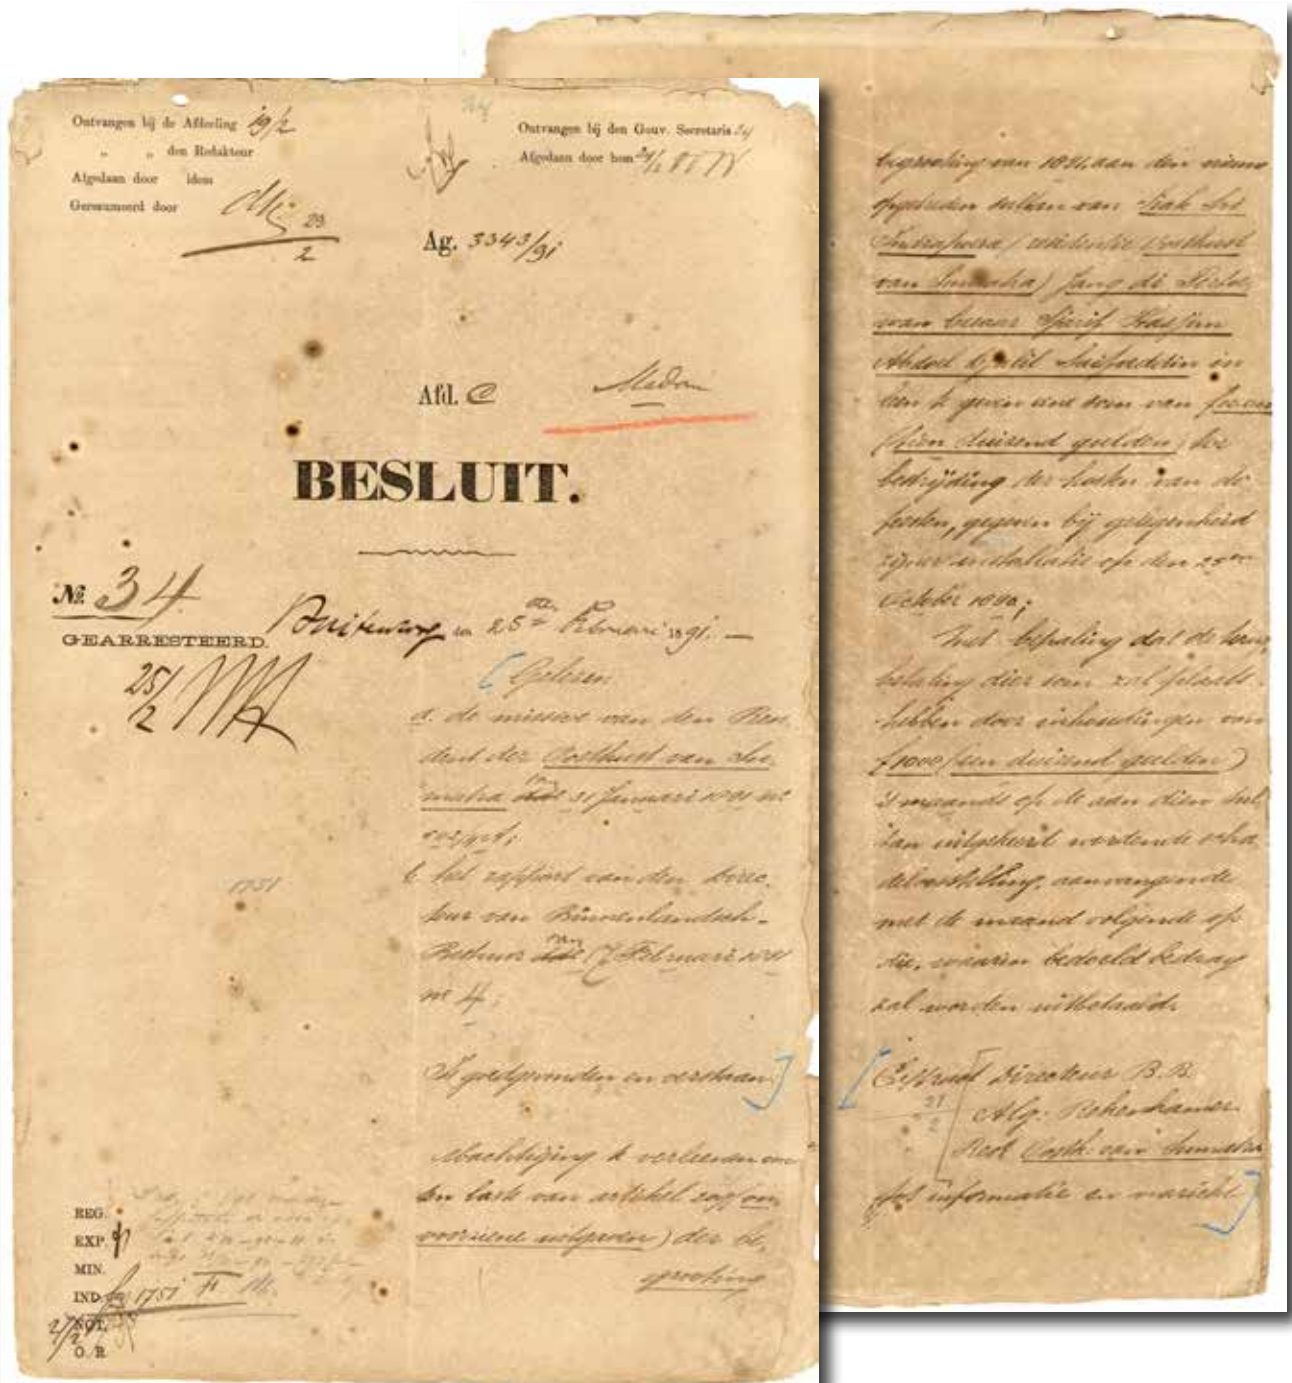 Ontvangen bij de Afdeeling 19/2
" " den Redakteur
Afgedaan door idem
Geresumeerd door
23
2
Ontvangen bij den Gouv. Secretaris 24
Afgedaan door hem
Ag. 3343/91
Afd. C
BESLUIT.
No. 34
GEARRESTEERD.
25/2
Buitenzorg, den 25sten Februari 1891. —
Gelezen
a. de missive van den Resi-
dent der Oostkust van Su-
matra van 31 Januari 1891 no
b. het rapport van den Direc-
teur van Binnenlandsch-
Bestuur van 17 Februari 1891
no 4;
1751
Is goedgevonden en verstaan:
Machtiging te verleenen om
ten laste van artikel (on-
voorziene uitgaven) der be-
grooting
REG.
EXP.
MIN.
IND. 1751
NOT.
O. R.
begrooting van 1891, aan den nieuw
opgetreden sultan van Siak Sri
Indrapoera (residentie Oostkust
van Sumatra) Jang di Pertoe-
wan besaar Sjarif Hasjim
Abdoel Djalil Saifoeddin in
leen te geven eene som van
(tien duizend gulden) ter
bestrijding der kosten van de
feesten, gegeven bij gelegenheid
zijner installatie op den 25en
October 1890;
Met bepaling dat de terug-
betaling dier som zal plaats
hebben door inhoudingen van
f 1000 (een duizend gulden)
's maands op de aan dien sul-
tan uitgekeerd wordende scha-
deloosstelling, aanvangende
met de maand volgende op
die, waarin bedoeld bedrag
zal worden uitbetaald.
Extract Directeur B.B.
Alg. Rekenkamer
Rest Oostk. van Sumatra
tot informatie en naricht